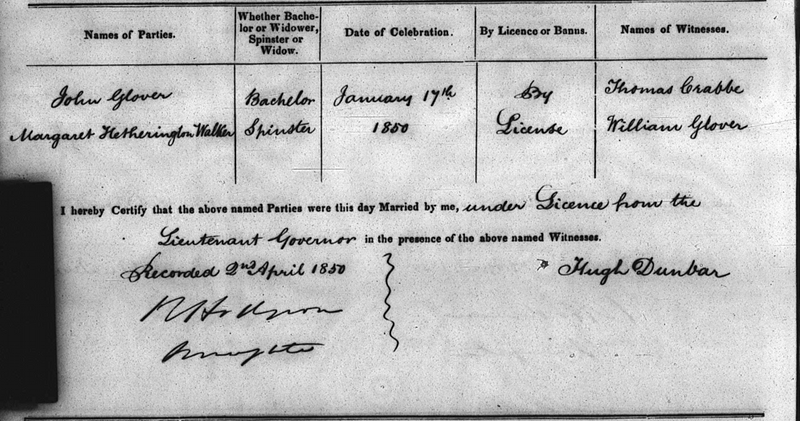 Names of Parties.
Whether Bache-
lor or Widower,
Spinster or
Widow.
Date of Celebration.
By Licence or Banns.
Names of Witnesses.
John Glover
Bachelor
January 17th
By
Thomas Crabbe
Margaret Hetherington Walker
Spinster
1850
License
William Glover
I hereby Certify that the above named Parties were this day Married by me, under Licence from the
Lieutenant Governor in the presence of the above named Witnesses.
Recorded 2nd April 1850
Hugh Dunbar
R Hodgson